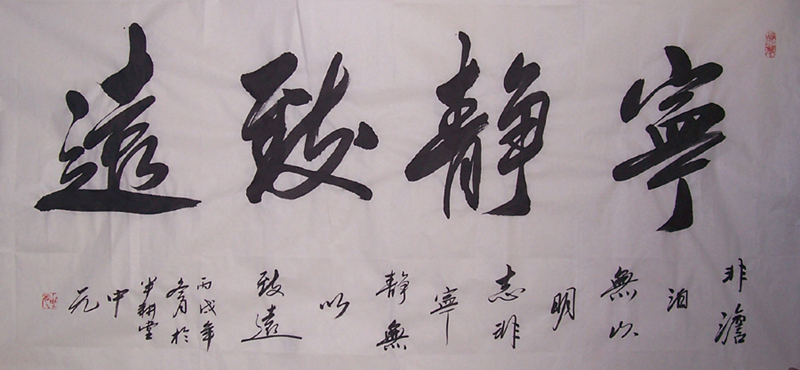 寧静致遠
非澹
泊
無以
明
志非
寧
静無
以
致遠
丙戌年
冬月於
半耕堂
中
元